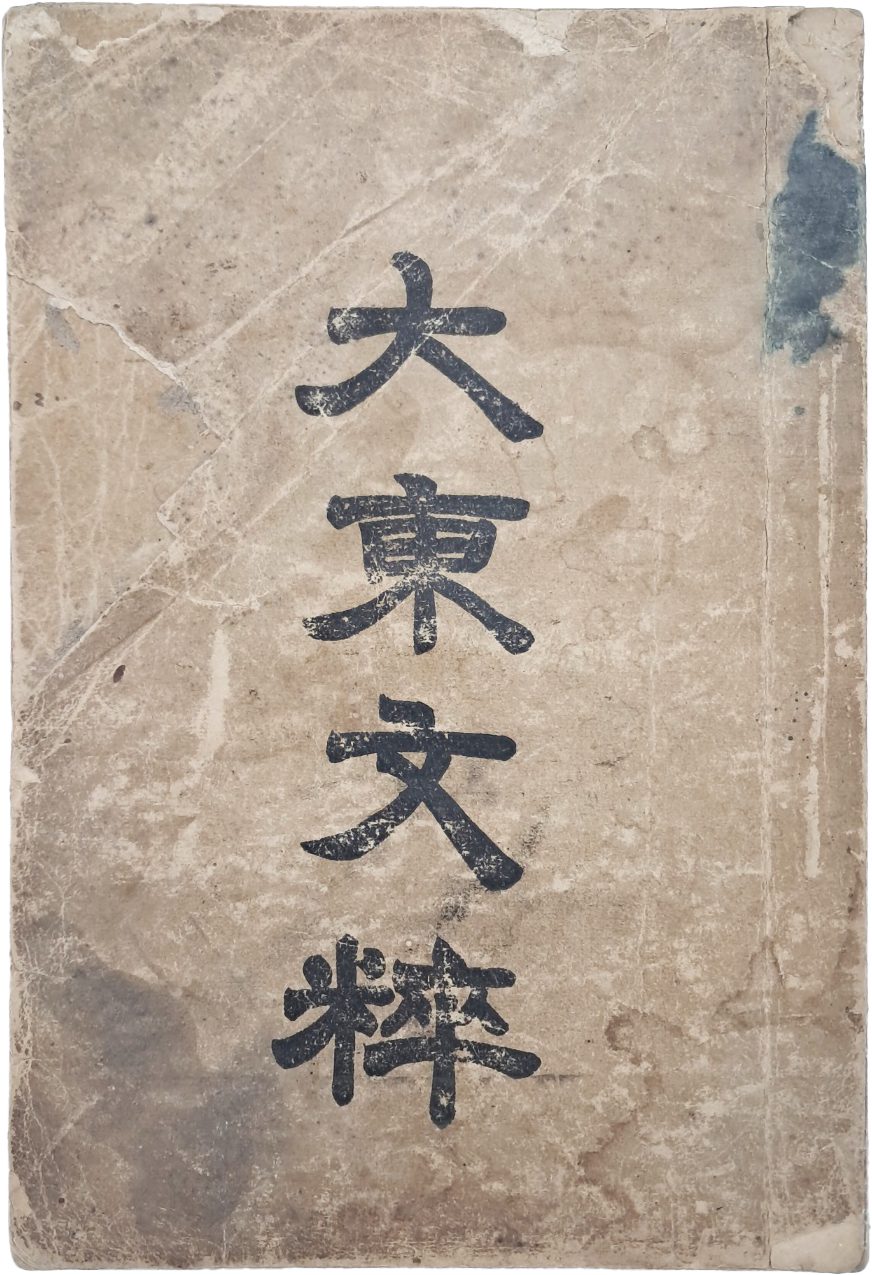 大東文粹